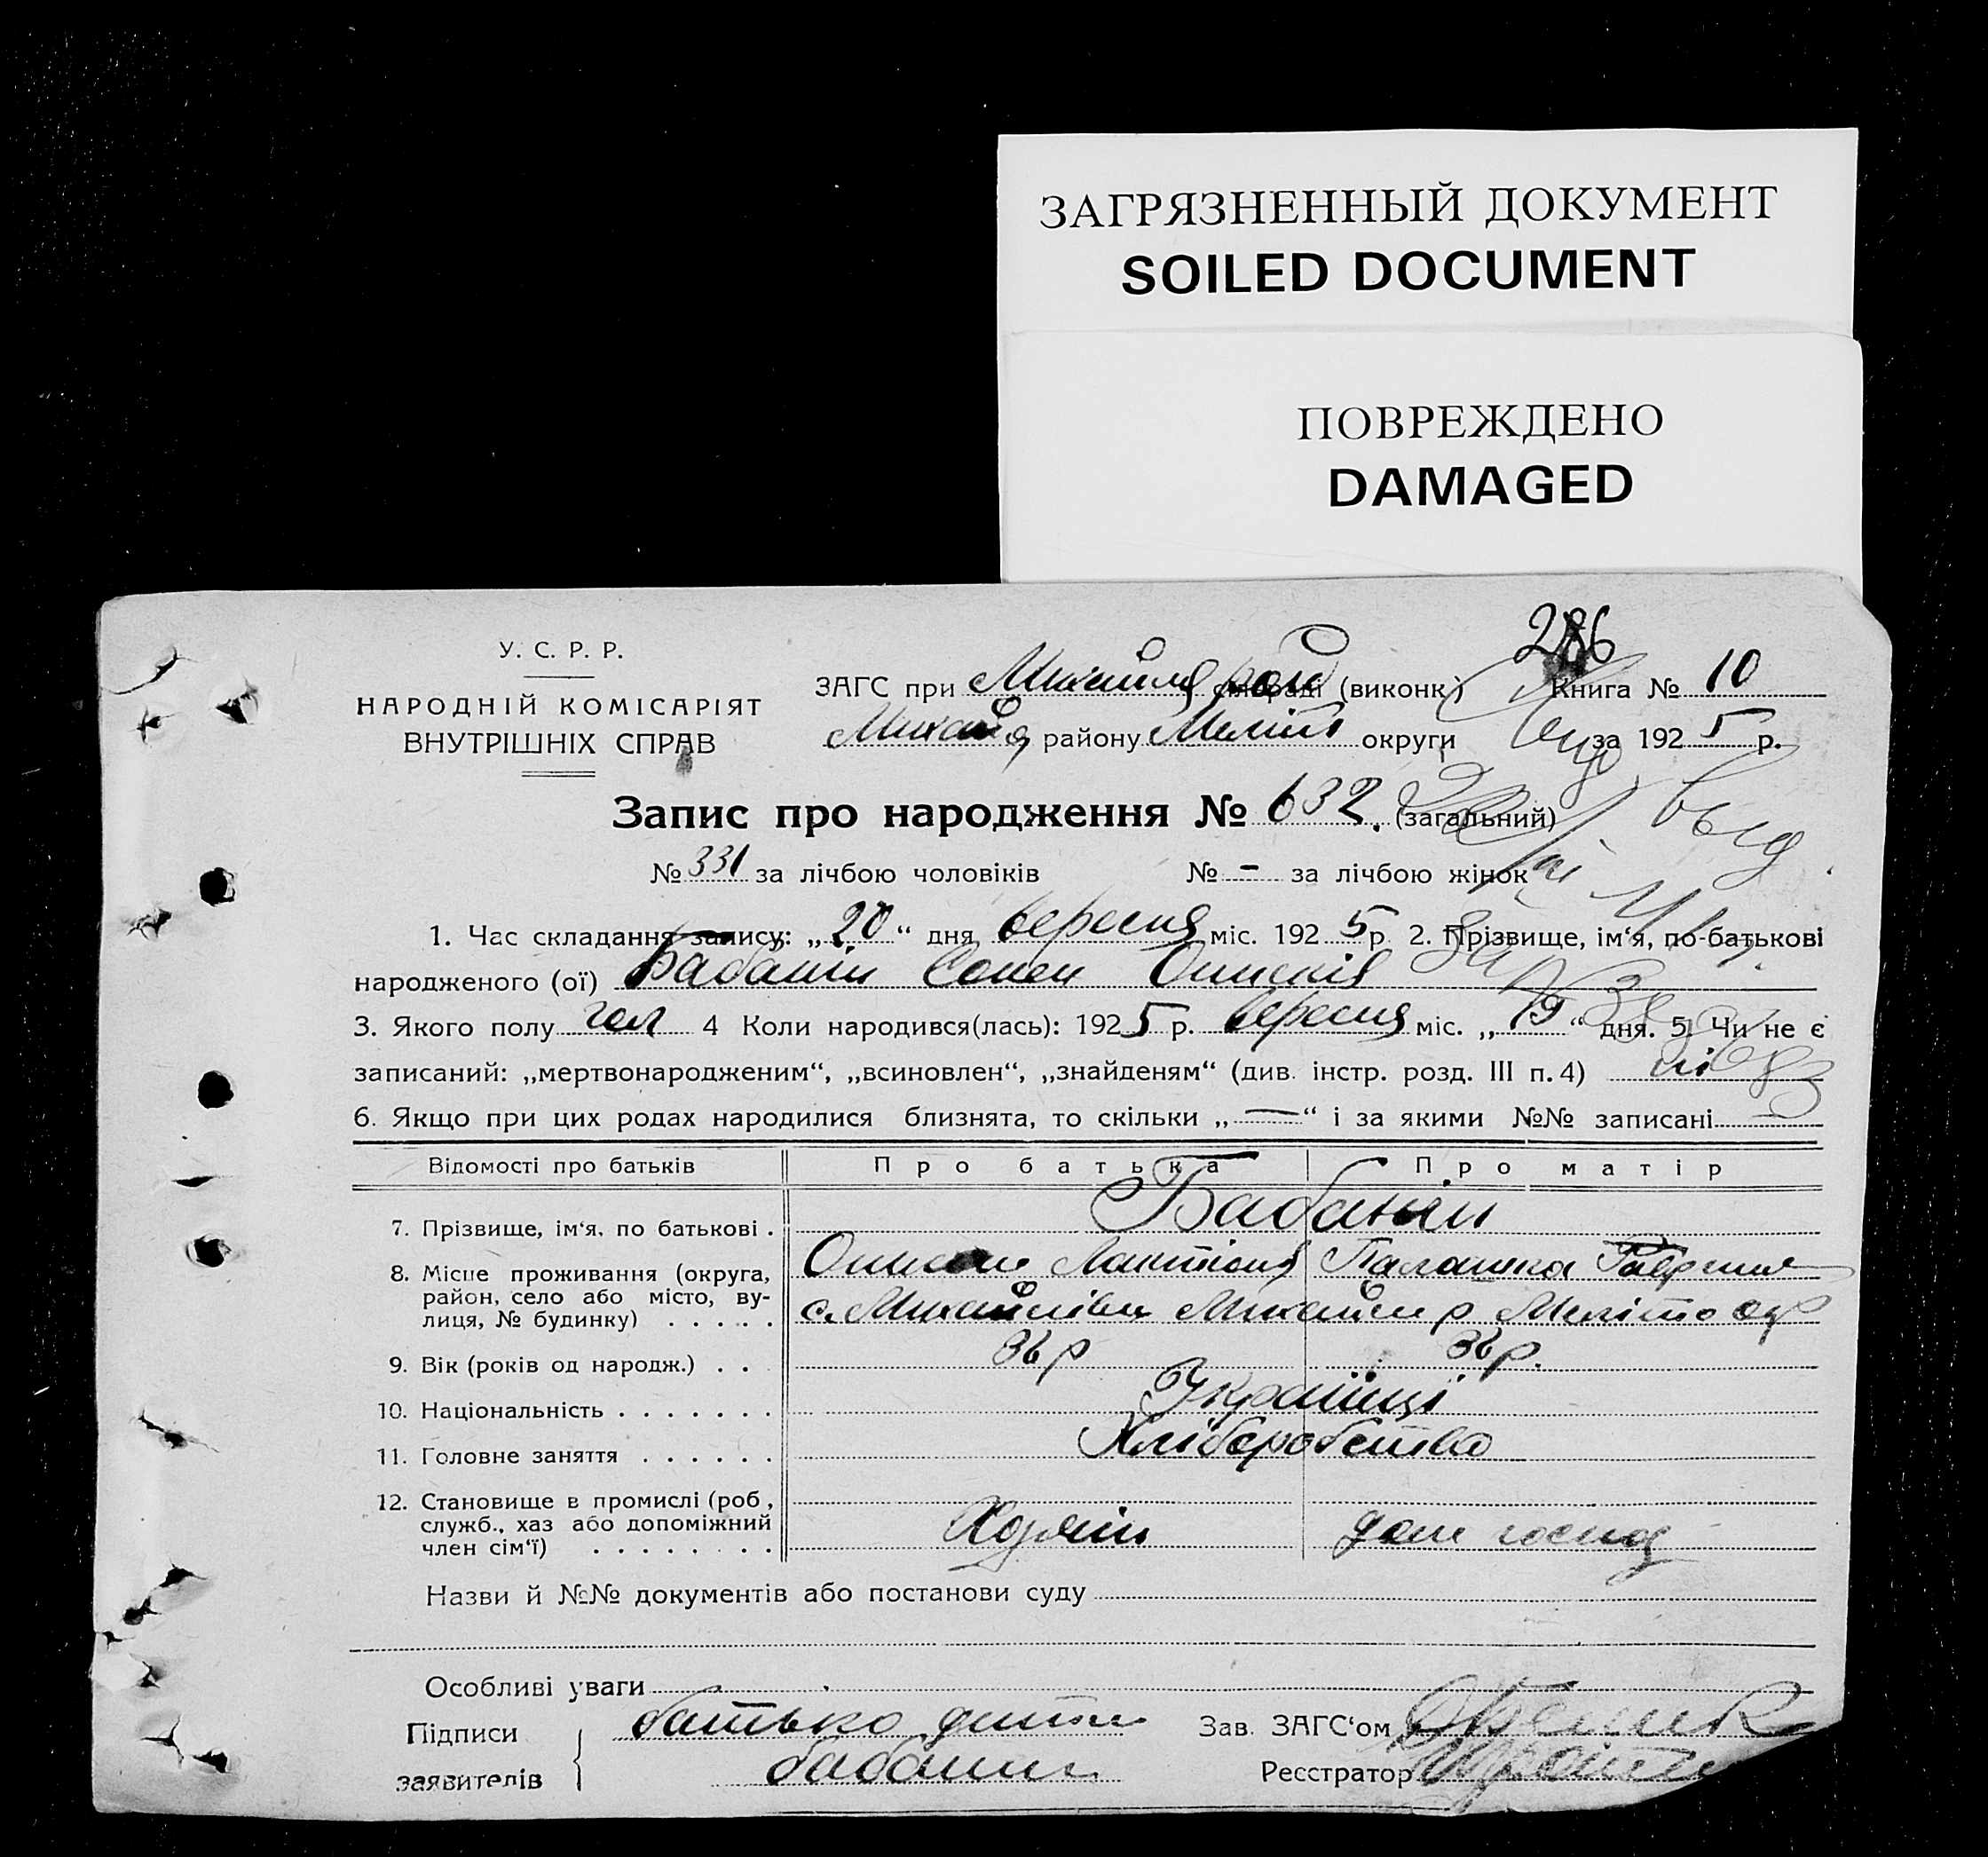 ЗАГРЯЗНЕННЫЙ ДОКУМЕНТ
SOILED DOCUMENT
ПОВРЕЖДЕНО
DAMAGED
286
У. С. Р. Р.
НАРОДНІЙ КОМІСАРІЯТ
ВНУТРІШНІХ СПРАВ
ЗАГС при (виконк) Книга № 10
району Меліт округи за 1925 р.
Запис про народження № 632. (загальний)
№ 331 за лічбою чоловіків № - за лічбою жінок
1. Час складання запису: „20“ дня вересня міс. 1925 р. 2. Прізвище, ім‘я, по-батькові
народженого (ої) Бабанін
3. Якого полу чол 4 Коли народився(лась): 1925 р. вересня міс. „19“ дня. 5. Чи не є
записаний: „мертвонародженим“, „всиновлен“, „знайденям“ (див. інстр. розд. III п. 4) ні
6. Якщо при цих родах народилися близнята, то скільки „—“ і за якими №№ записані
Відомості про батьків Про батька Про матір
7. Прізвище, ім‘я, по батькові . Бабанін
8. Місце проживання (округа,
район, село або місто, вулиця, № будинку) . . . . .
с. Михайлівка
9. Вік (років од народж.) . . 36 р 36 р.
10. Національність . . . . . . . Українці
11. Головне заняття . . . . . . Хліборобство
12. Становище в промислі (роб,
служб., хаз або допоміжний
член сім‘ї) . . . . . . . . Хазяїн дом господ
Назви й №№ документів або постанови суду
Особливі уваги
Підписи батько дитини Зав. ЗАГС‘ом
заявителів бабанин Реєстратор